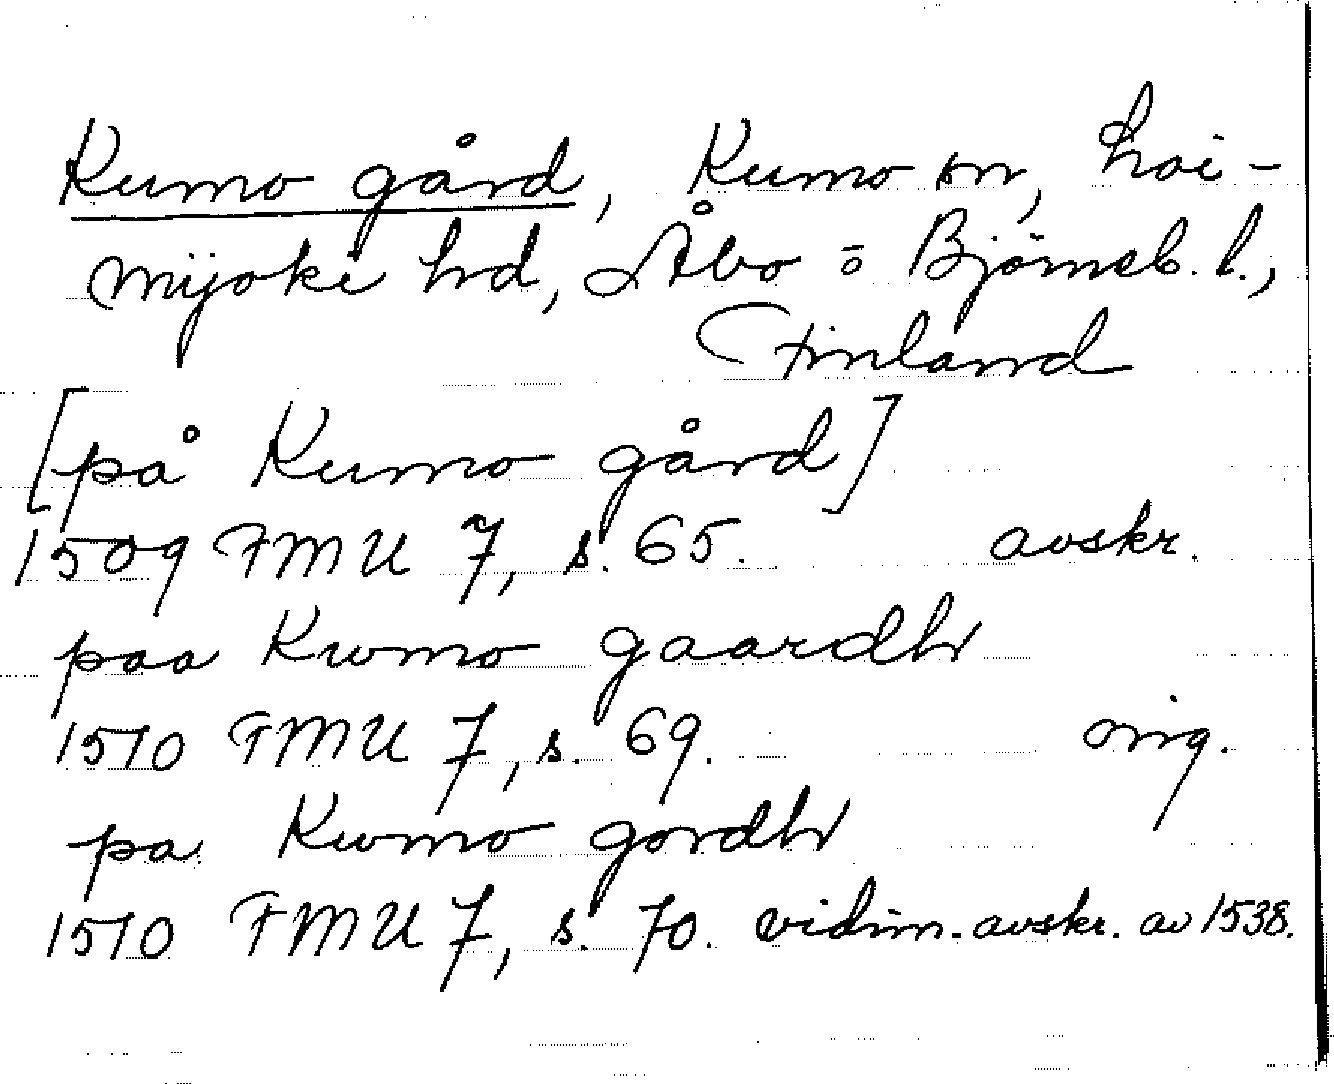 Kumo gård, Kumo sn, Loi-
mijoki hd, Åbo = Björneb. l.,
Finland
[på Kumo gård]
1509 FMU 7, s. 65. avskr.
paa Kwmo gaardh
1510 FMU 7, s. 69. orig.
pa Kwmo gordh
1510 FMU 7, s. 70. vidim. avskr. av 1538.